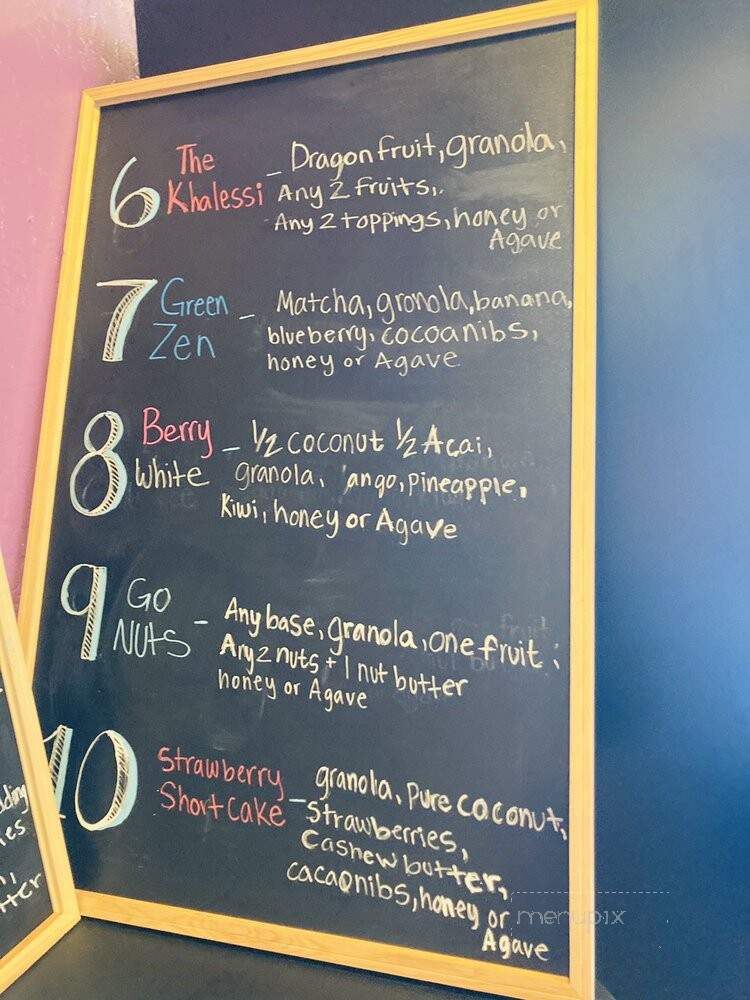 6 The Khalessi - Dragonfruit, granola,
Any 2 fruits,
Any 2 toppings, honey or
Agave
7 Green Zen - Matcha, gronola, banana,
blueberry, cocoanibs,
honey or Agave
8 Berry White - 1/2 coconut 1/2 Acai,
granola, ango, pineapple,
Kiwi, honey or Agave
9 GO NUtS - Any base, granola, one fruit;
Any 2 nuts + 1 nut butter
honey or Agave
10 Strawberry Shortcake - granola, pure coconut,
Strawberries,
Cashew butter,
cacaonibs, honey or
Agave
menupix